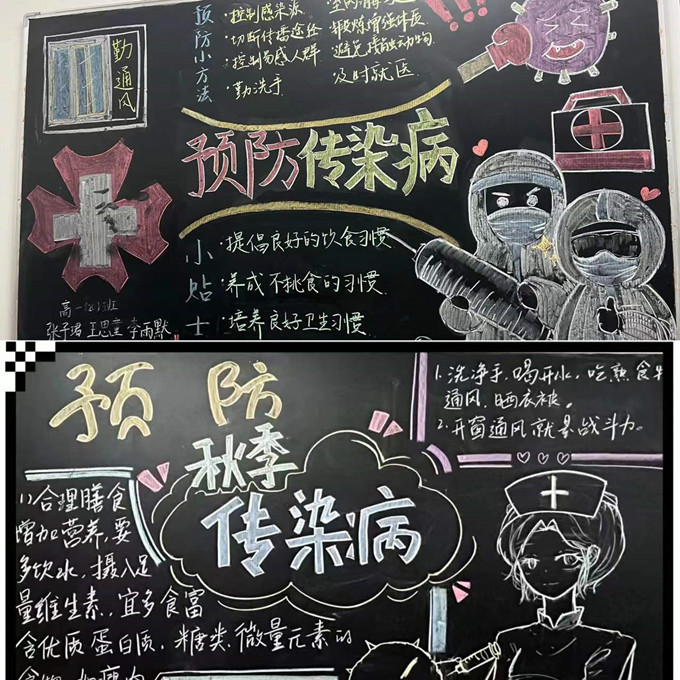 勤通风
预防小方法
·控制感染源
·切断传播途径
·控制易感人群
·勤洗手
·锻炼增强体质
·避免接触动物
·及时就医
预防传染病
小贴士
·提倡良好的饮食习惯
·养成不挑食的习惯
·培养良好卫生习惯
张子珺 王思童 李雨默
预防
秋季
传染病
1.洗净手,喝开水,吃熟食
通风,晒衣被。
2.开窗通风就是战斗力。
(1)合理膳食
增加营养,要
多饮水,摄入足
量维生素,宜多食富
含优质蛋白质、糖类、微量元素的